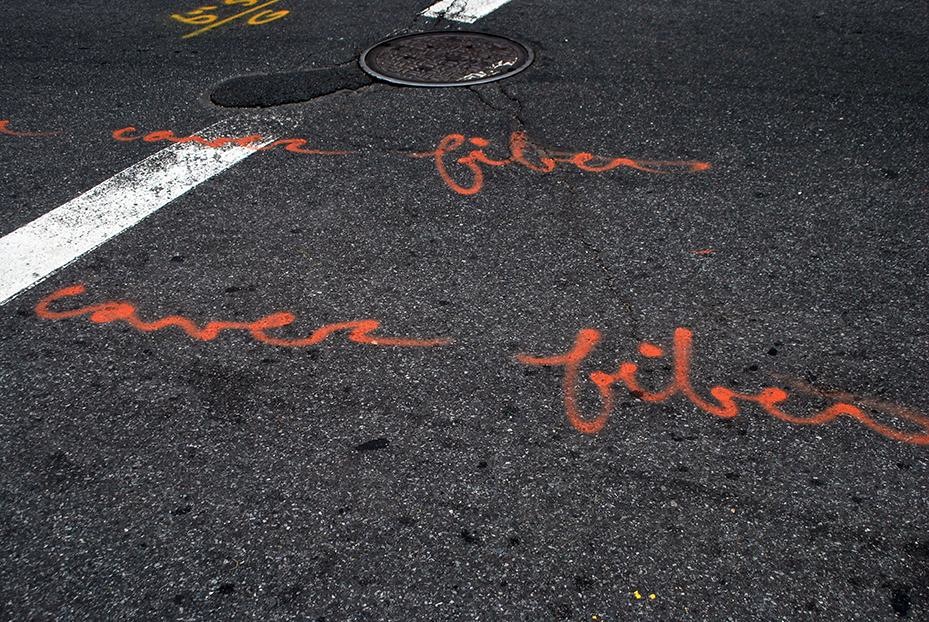 5/6
caver fiber
caver fiber